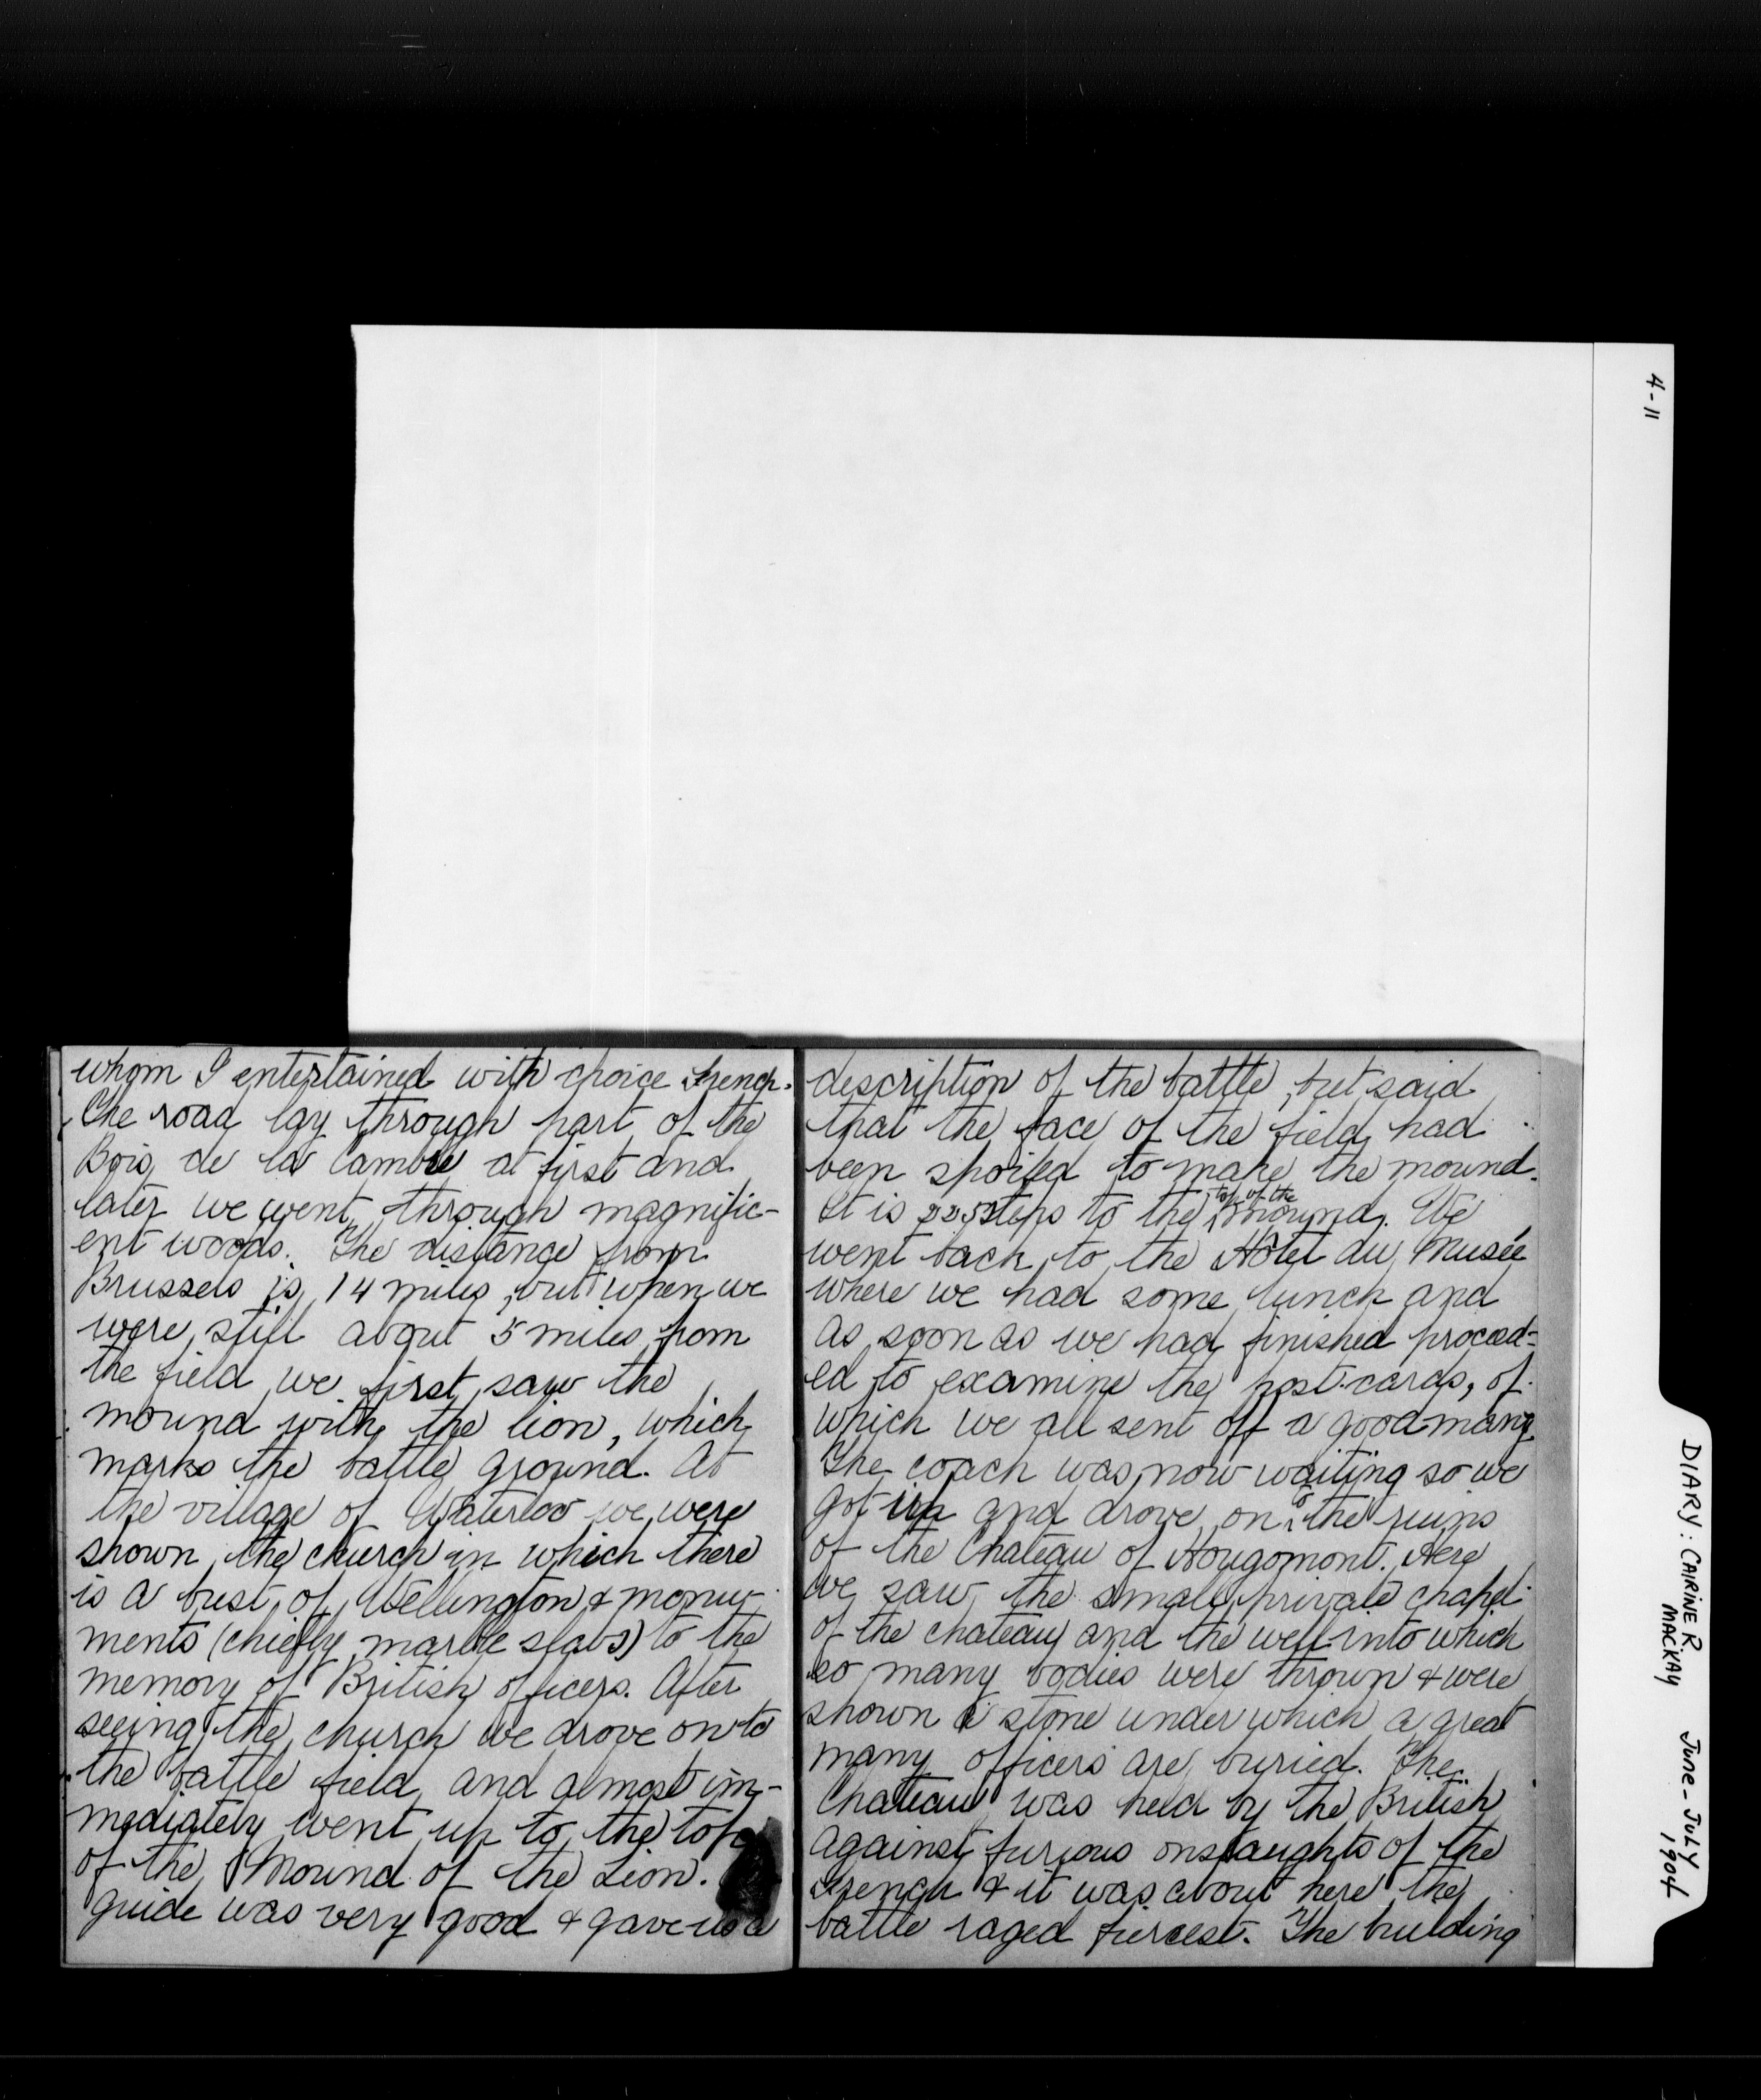 whom I entertained with choice French.
The road lay through part of the
Bois de la Cambre at first and
later we went through magnific-
ent woods. The distance from
Brussels is 14 miles, but when we
were still about 5 miles from
the field we first saw the
mound with the lion, which
marks the battle ground. At
the village of Waterloo we were
shown the church in which there
is a bust of Wellington & monu-
ments (chiefly marble slabs) to the
memory of British officers. After
seeing the church we drove on to
the battle field and almost im-
mediately went up to the top
of the Mound of the Lion.
guide was very good & gave us a
description of the battle, but said
that the face of the field had
been spoiled to make the mound.
It is 225 steps to the top of the mound. We
went back to the Hôtel du Musée
where we had some lunch and
as soon as we had finished proceed-
ed to examine the post-cards, of
which we all sent off a good many.
The coach was now waiting so we
got in and drove on to the ruins
of the Chateau of Hougomont. Here
we saw the small private chapel
of the chateau and the well into which
so many bodies were thrown & were
shown a stone under which a great
many officers are buried. The
Chateau was held by the British
against furious onslaughts of the
French & it was about here the
battle raged fiercest. The building
4-11
DIARY: CAIRINE R. MACKAY
June - July 1904